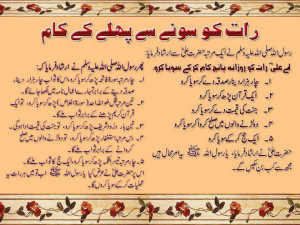 رات کو سونے سے پہلے کے کام
رسول اللہ صلی اللہ علیہ وسلم نے ایک مرتبہ حضرت علیؓ سے ارشاد فرمایا:
اے علیؓ رات کو روزانہ پانچ کام کر کے سویا کرو
۱۔ چار ہزار دینار صدقہ دے کر سویا کرو
۲۔ ایک قرآن پڑھ کر سویا کرو
۳۔ جنت کی قیمت دے کر سویا کرو
۴۔ دو لڑنے والوں میں صلح کرا کر سویا کرو
۵۔ ایک حج کر کے سویا کرو
حضرت علیؓ نے ارشاد فرمایا، یا رسول اللہ ﷺ یہ امر محال ہے
پھر رسول اللہ صلی اللہ علیہ وسلم نے ارشاد فرمایا کہ:
۱۔ چار مرتبہ سورۃ فاتحہ پڑھ کر سویا کرو اس کا ثواب چار ہزار دینار
صدقہ دینے کے برابر
۲۔ تین مرتبہ قل ھو اللہ احد پڑھ کر سویا کرو
۳۔ تین مرتبہ درود شریف پڑھ کر سویا کرو، جنت کی قیمت ادا ہوگی
۴۔ دس مرتبہ استغفار پڑھ کر سویا کرو، دو لڑنے والوں میں صلح
کرانے کے برابر ثواب
۵۔ چار مرتبہ تیسرا کلمہ پڑھ کر سویا کرو ایک حج کا ثواب ملے گا
اس پر حضرت علیؓ نے عرض کیا یا رسول اللہ ﷺ اب تو میں روزانہ یہی
عملیات کر کے سویا کروں گا